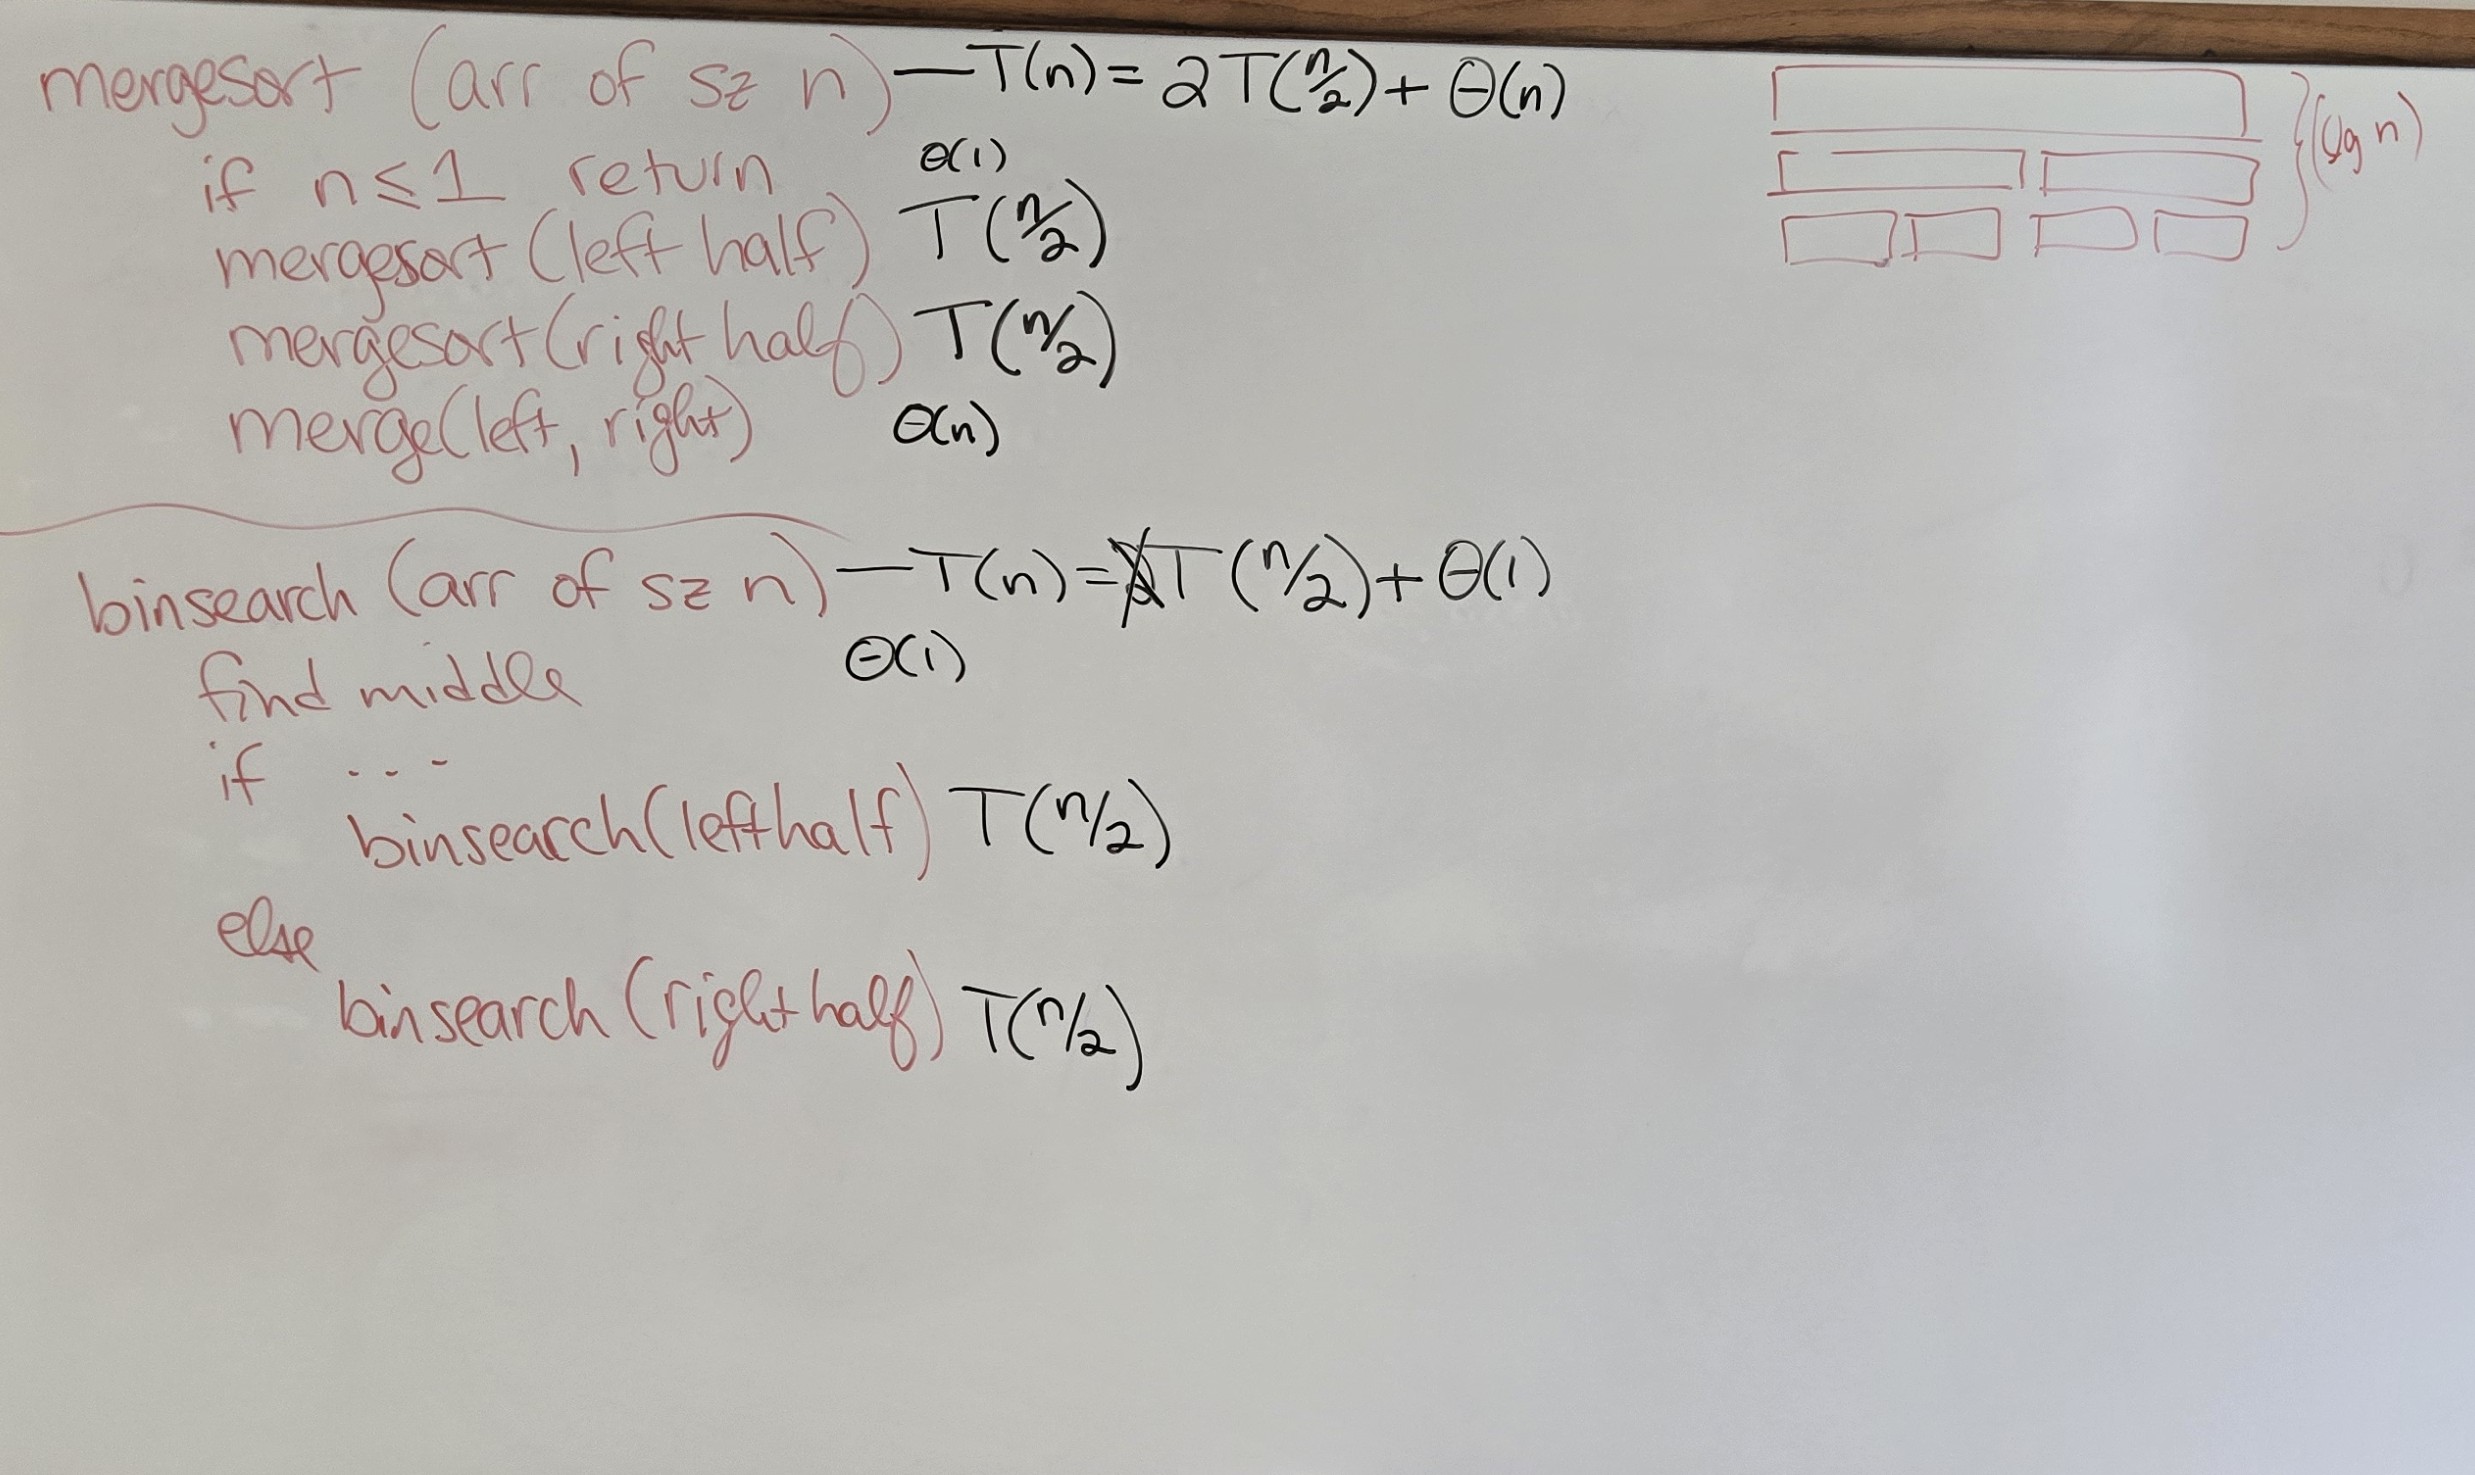 mergesort (arr of sz n) — T(n) = 2T(n/2) + Θ(n)
if n ≤ 1 return Θ(1)
mergesort (left half) T(n/2)
mergesort (right half) T(n/2)
merge(left, right) Θ(n)
(lg n)
binsearch (arr of sz n) — T(n) = T(n/2) + Θ(1)
find middle Θ(1)
if ...
binsearch (left half) T(n/2)
else
binsearch (right half) T(n/2)